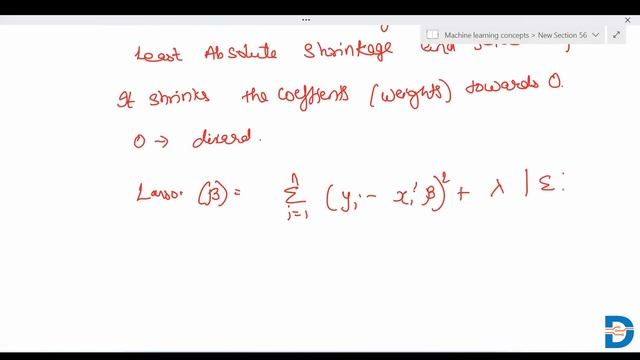 Machine learning concepts > New Section 56
Least Absolute Shrinkage and
It shrinks the coeffients (weights) towards 0.
0 → discard.
Lasso: (β) = n Σ i=1 (yᵢ - xᵢ' β)² + λ | Σ i